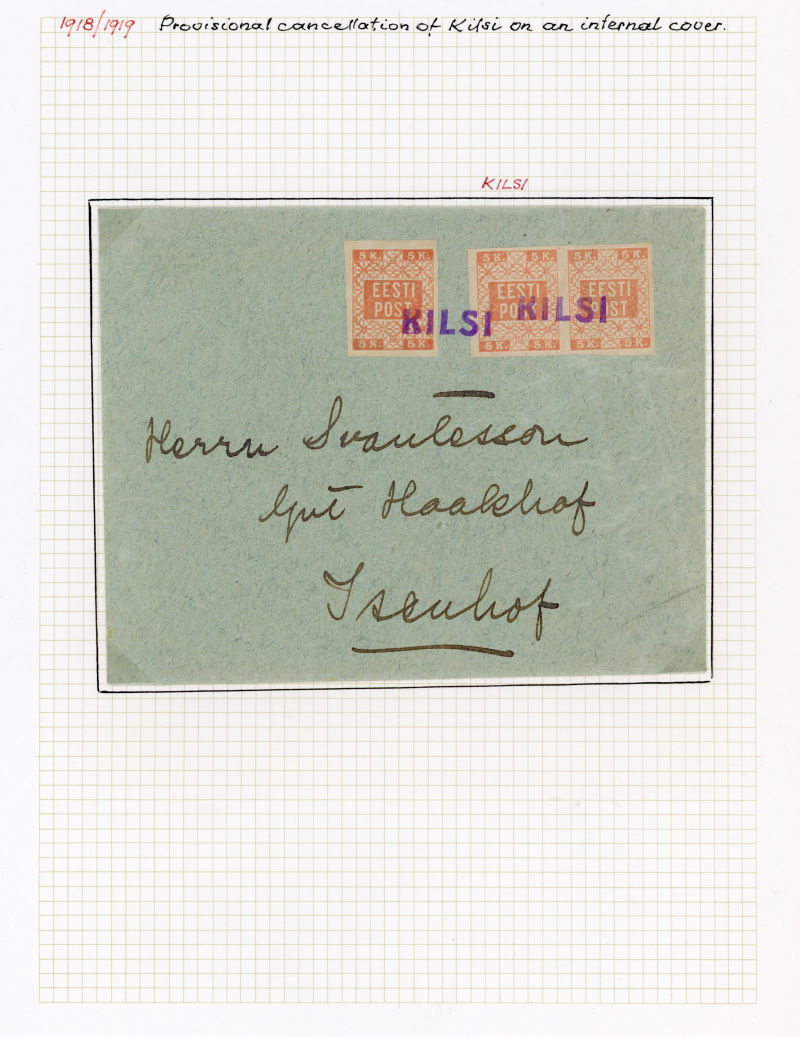 1918/1919 Provisional cancellation of Kilsi on an internal cover.
KILSI
5 K. 5 K. 5 K. 5 K. 5 K. 5 K.
EESTI EESTI EESTI
POST POST POST
KILSI KILSI
5 K. 5 K. 5 K. 5 K. 5 K. 5 K.
Herrn Svantesson
Gut Haakhof
Isenhof